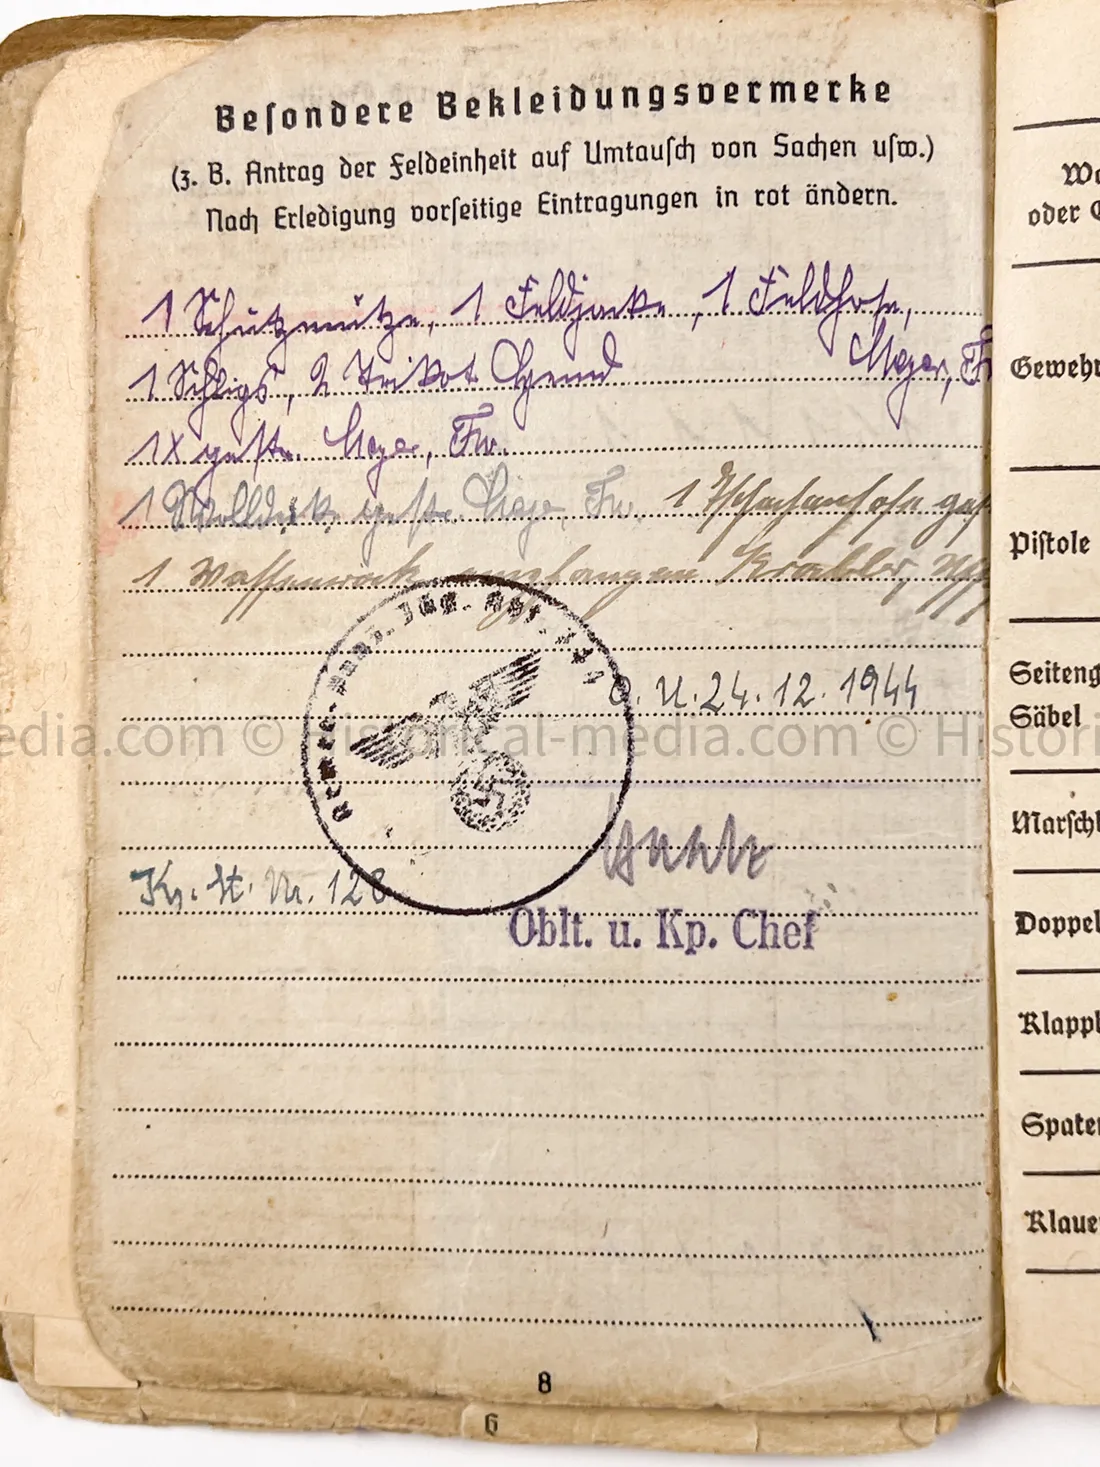 Besondere Bekleidungsvermerke
(z. B. Antrag der Feldeinheit auf Umtausch von Sachen usw.)
Nach Erledigung vorseitige Eintragungen in rot ändern.
1 Schutzmütze, 1 Feldjacke, 1 Feldhose,
1 Schlips, 2 Trikot Hemd Meyer, F
1 X gestr. Meyer, Fw.
1 Wolldek. gestr. Meyer, Fw. 1
1 Waffenrock empfangen
O. U. 24. 12. 1944
Kr. St. Nr. 128
Oblt. u. Kp. Chef
8
6
oder
Gewehr
Pistole
Seiteng
Säbel
Marschk
Doppel
Klapp
Spaten
Klaue
edia.com © Historical-media.com © Histori